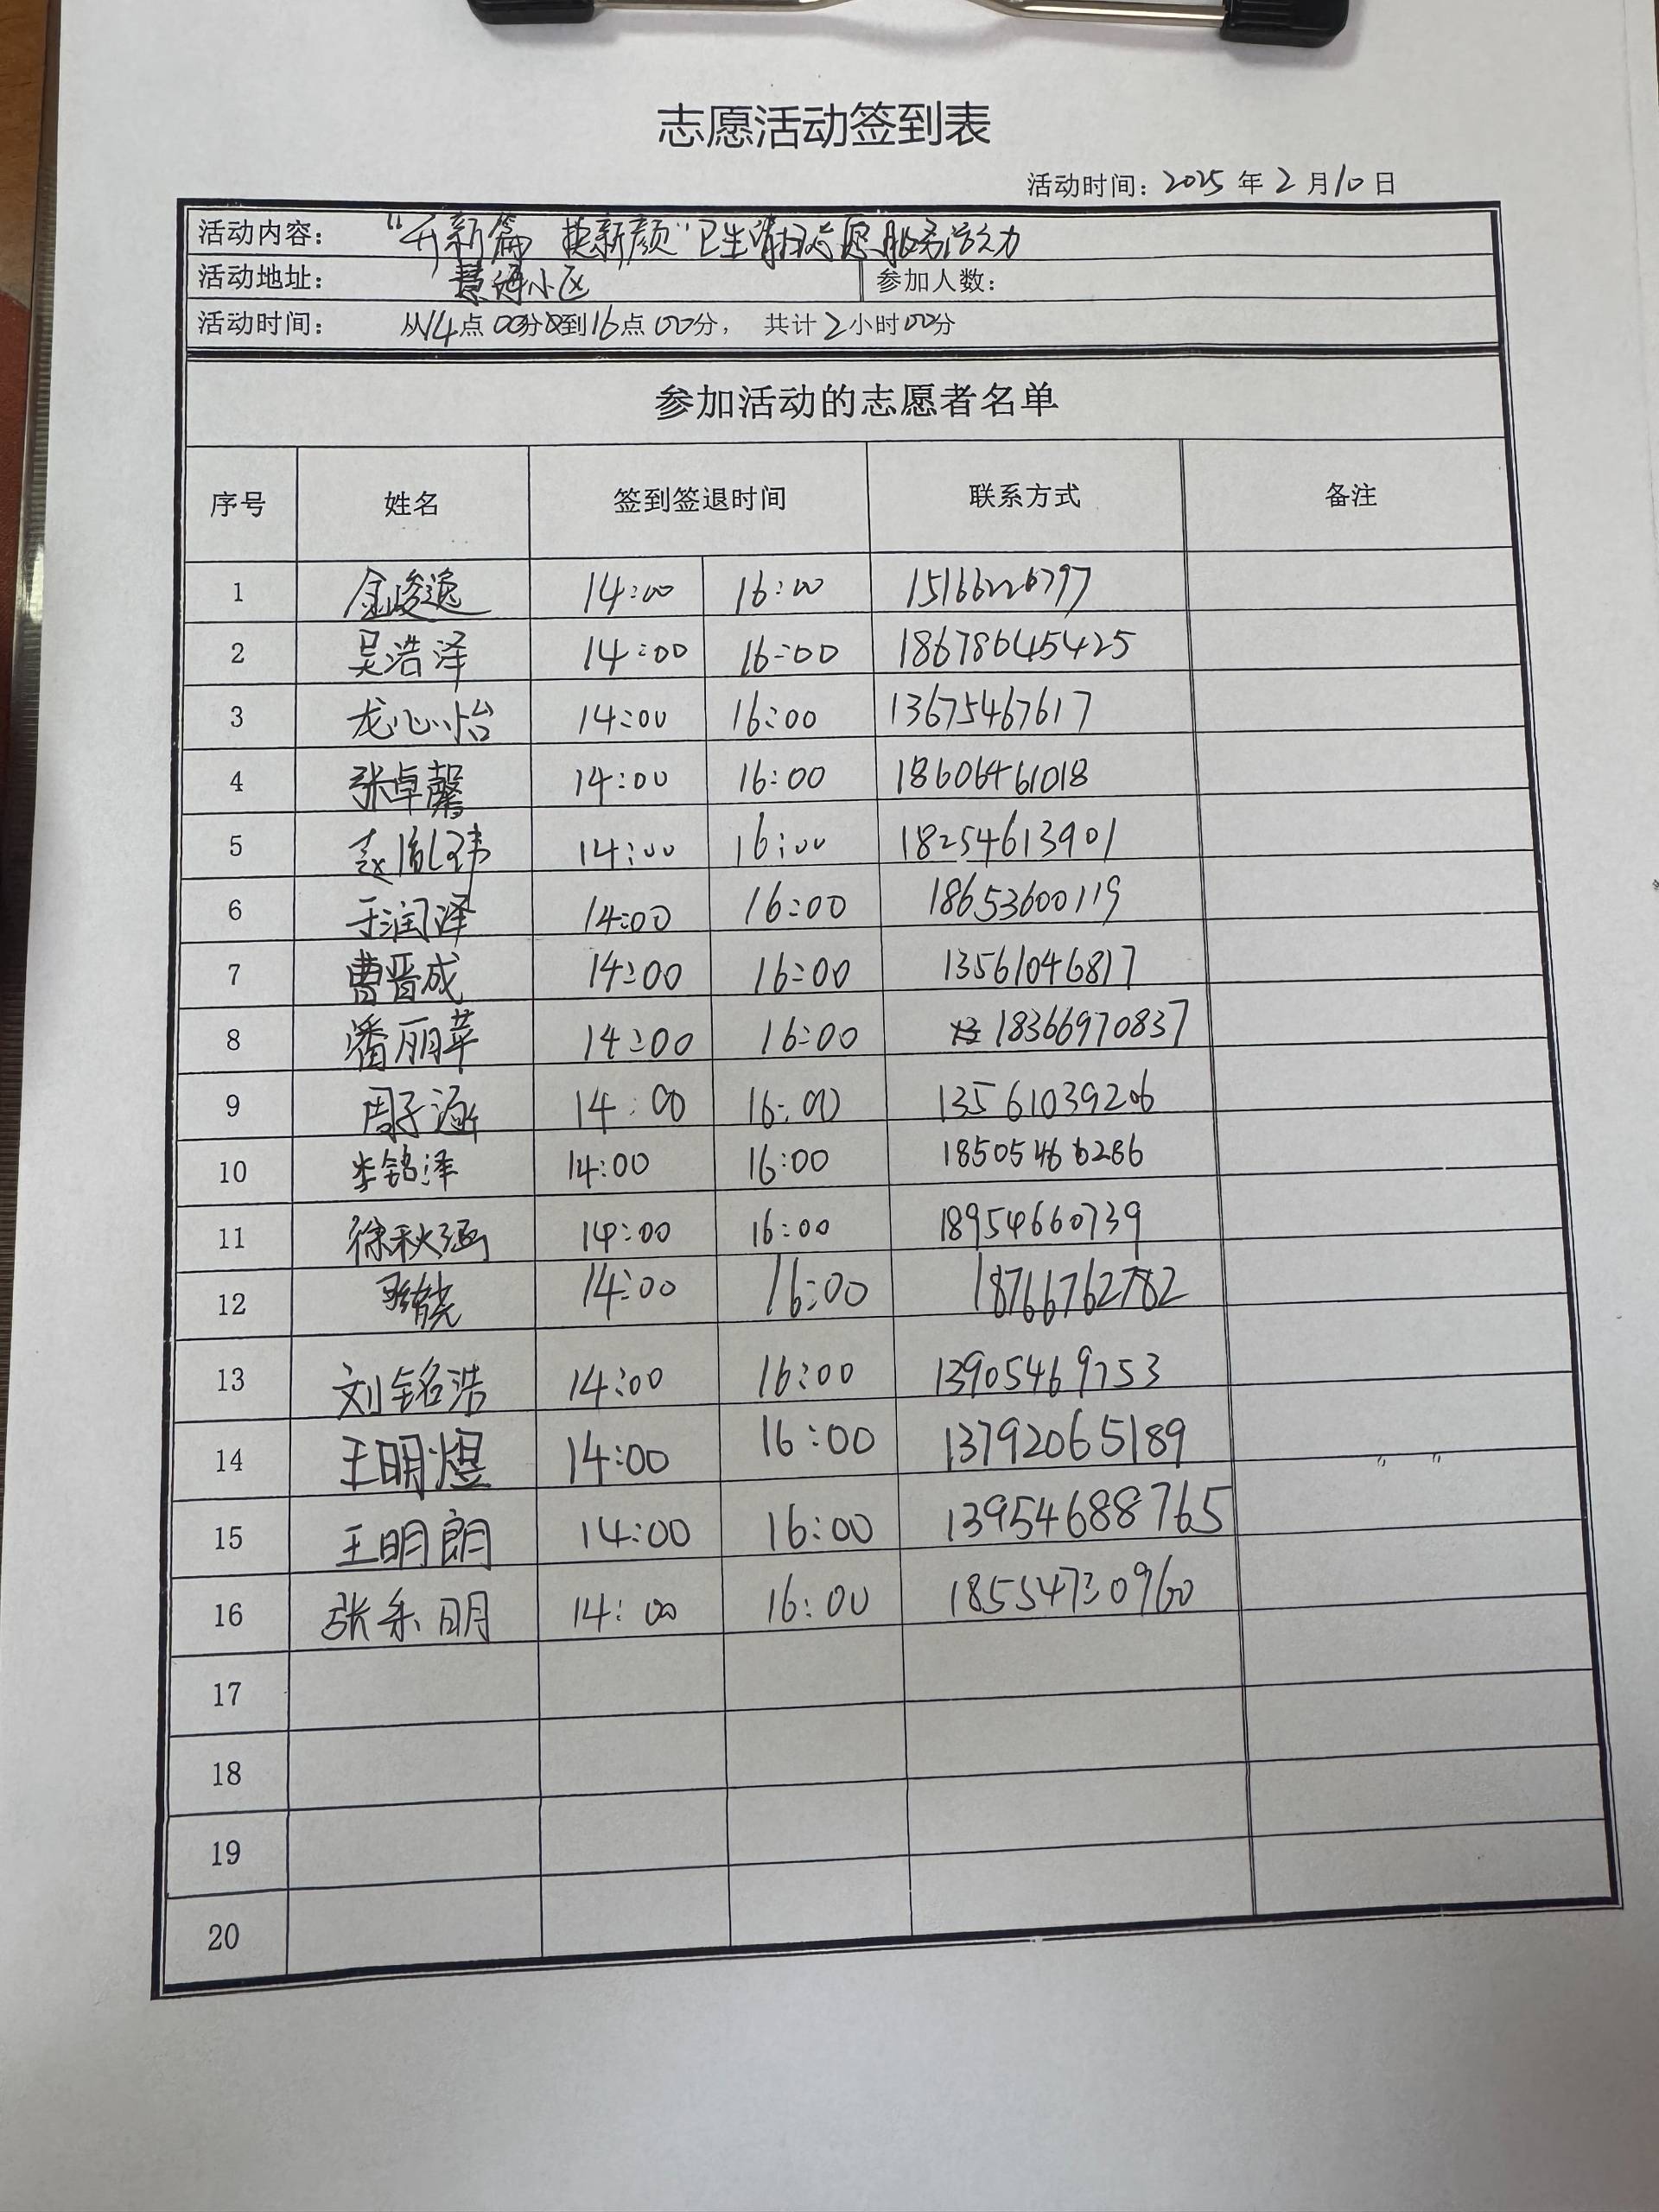 志愿活动签到表
活动时间：2025年2月10日
活动内容：“开新篇 换新颜”卫生清扫志愿服务活动
活动地址： 小区 参加人数：
活动时间： 从14点00分到16点00分， 共计2小时00分
参加活动的志愿者名单
序号 姓名 签到签退时间 联系方式 备注
1 金峻逸 14:00 16:00 15166226797
2 吴浩泽 14:00 16:00 18678645425
3 龙心怡 14:00 16:00 13675467617
4 张卓馨 14:00 16:00 18606461018
5 赵胤玮 14:00 16:00 18254613901
6 于润泽 14:00 16:00 18653600119
7 曹晋成 14:00 16:00 13561046817
8 潘丽苹 14:00 16:00 18366970837
9 周子涵 14:00 16:00 13561039206
10 李铭泽 14:00 16:00 18505466286
11 徐秋涵 14:00 16:00 18954660739
12 14:00 16:00 18766762782
13 刘铭浩 14:00 16:00 13905469753
14 王明煜 14:00 16:00 13792065189
15 王明朗 14:00 16:00 13954688765
16 张乐明 14:00 16:00 18554730960
17
18
19
20